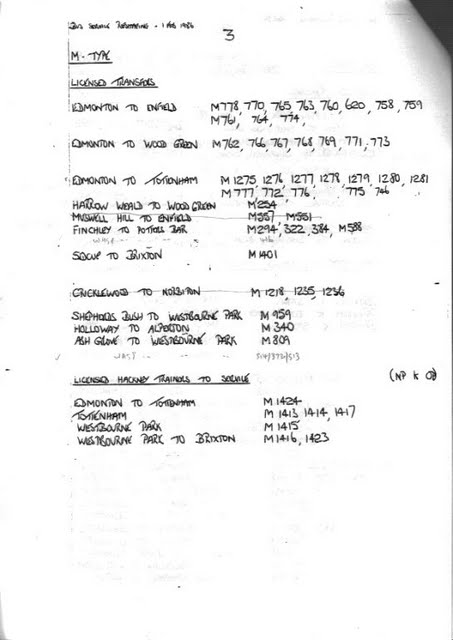 BUS SERVICE RESTRUCTURING - 1 FEB 1986
3
M-TYPE
LICENSED TRANSFERS
EDMONTON TO ENFIELD M778, 770, 765, 763, 760, 620, 758, 759
M761, 764, 774,
EDMONTON TO WOOD GREEN M762, 766, 767, 768, 769, 771, 773
EDMONTON TO TOTTENHAM M1275, 1276, 1277, 1278, 1279, 1280, 1281
M777, 772, 776, 775, 746
HARROW WEALD TO WOOD GREEN M254
MUSWELL HILL TO ENFIELD M557, M551
FINCHLEY TO POTTERS BAR M294, 322, 384, M588
SIDCUP TO BRIXTON M1401
CRICKLEWOOD TO NORBITON M1218, 1235, 1236
SHEPHERDS BUSH TO WESTBOURNE PARK M959
HOLLOWAY TO ALPERTON M340
ASH GROVE TO WESTBOURNE PARK M809
514/372/513
LICENSED HACKNEY TRAINERS TO SERVICE
EDMONTON TO TOTTENHAM M1424
TOTTENHAM M1413, 1414, 1417
WESTBOURNE PARK M1415
WESTBOURNE PARK TO BRIXTON M1416, 1423